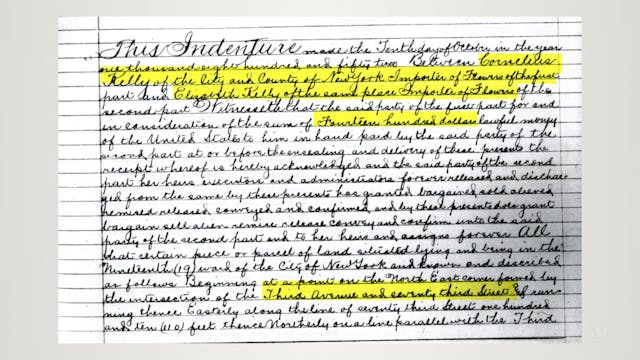 This Indenture made the Tenth day of October in the year
one thousand eight hundred and fifty two Between Cornelius
Kelly of the City and County of New York Importer of Flowers of the first
part and Elizabeth Kelly of the same place Importer of Flowers of the
second part Witnesseth that the said party of the first part for and
in consideration of the sum of Fourteen hundred dollars lawful money
of the United States to him in hand paid by the said party of the
second part at or before the ensealing and delivery of these presents the
receipt whereof is hereby acknowledged and the said party of the second
part her heirs executors and administrators forever released and dischar
ged from the same by these presents has granted bargained sold aliened
remised released conveyed and confirmed and by these presents does grant
bargain sell alien remise release convey and confirm unto the said
party of the second part and to her heirs and assigns forever All
that certain piece or parcel of land situated lying and being in the
Nineteenth (19) ward of the City of New York and known and described
as follows Beginning at a point on the North East corner formed by
the intersection of the Third Avenue and seventy third Street & run
ning thence Easterly along the line of seventy third Street one hundred
and ten (110) feet thence Northerly on a line parallel with the Third